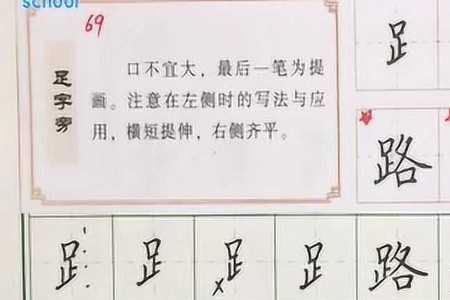 school
69
足字旁
口不宜大，最后一笔为提
画。注意在左侧时的写法与应
用，横短提伸，右侧齐平。
𧾷
路
𧾷 𧾷 x 𧾷 𧾷 路